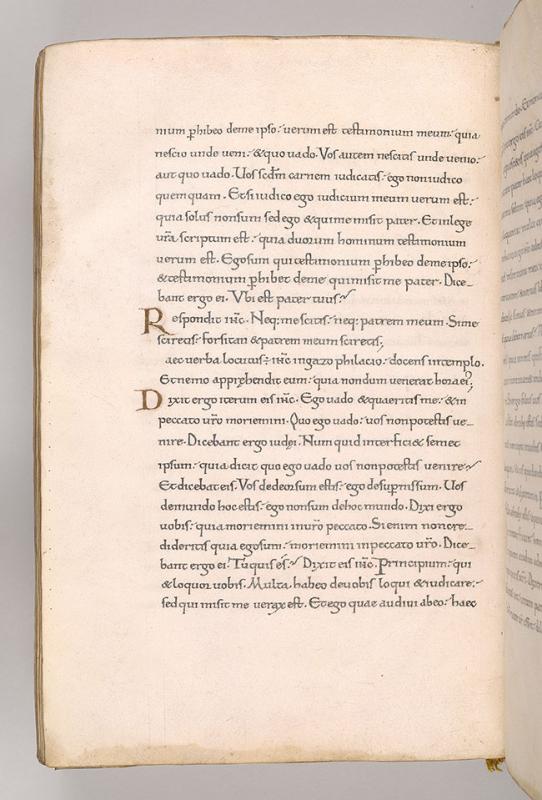 nium phibeo deme ipso: verum est testimonium meum: quia
nescio unde veni: & quo vado. Vos autem nescitis unde venio:
aut quo vado. Uos scdm carnem iudicatis: ego non iudico
quemquam. Et si iudico ego iudicium meum verum est:
quia solus non sum sed ego & qui me misit pater. Et in lege
vra scriptum est: quia duorum hominum testimonium
verum est. Ego sum qui testimonium phibeo deme ipso:
& testimonium phibet deme qui misit me pater. Dice-
bant ergo ei. Vbi est pater tuus:
Respondit ihc. Neq; me scitis: neq; patrem meum. Si me
sciretis: forsitan & patrem meum sciretis;
aec verba locutus: ihc in gazophilacio: docens in templo.
Et nemo appręhendit eum: quia nondum venerat hora ei;
Dixit ergo iterum eis ihc. Ego vado & quaeritis me: & in
peccato vro moriemini. Quo ego vado: vos non potestis ve-
nire. Dicebant ergo iudęi. Num quid interfici& semet
ipsum: quia dicit quo ego vado vos non potestis venire
Et dicebat eis. Vos de deorsum estis: ego de supnis sum. Uos
de mundo hoc estis: ego non sum de hoc mundo. Dixi ergo
vobis: quia moriemini in vro peccato. Si enim non cre-
dideritis quia ego sum: moriemini in peccato vro. Dice-
bant ergo ei. Tu quis es: Dixit eis ihc. Principium: qui
& loquor vobis. Multa habeo de vobis loqui & iudicare:
sed qui misit me verax est. Et ego quae audivi abeo: haec